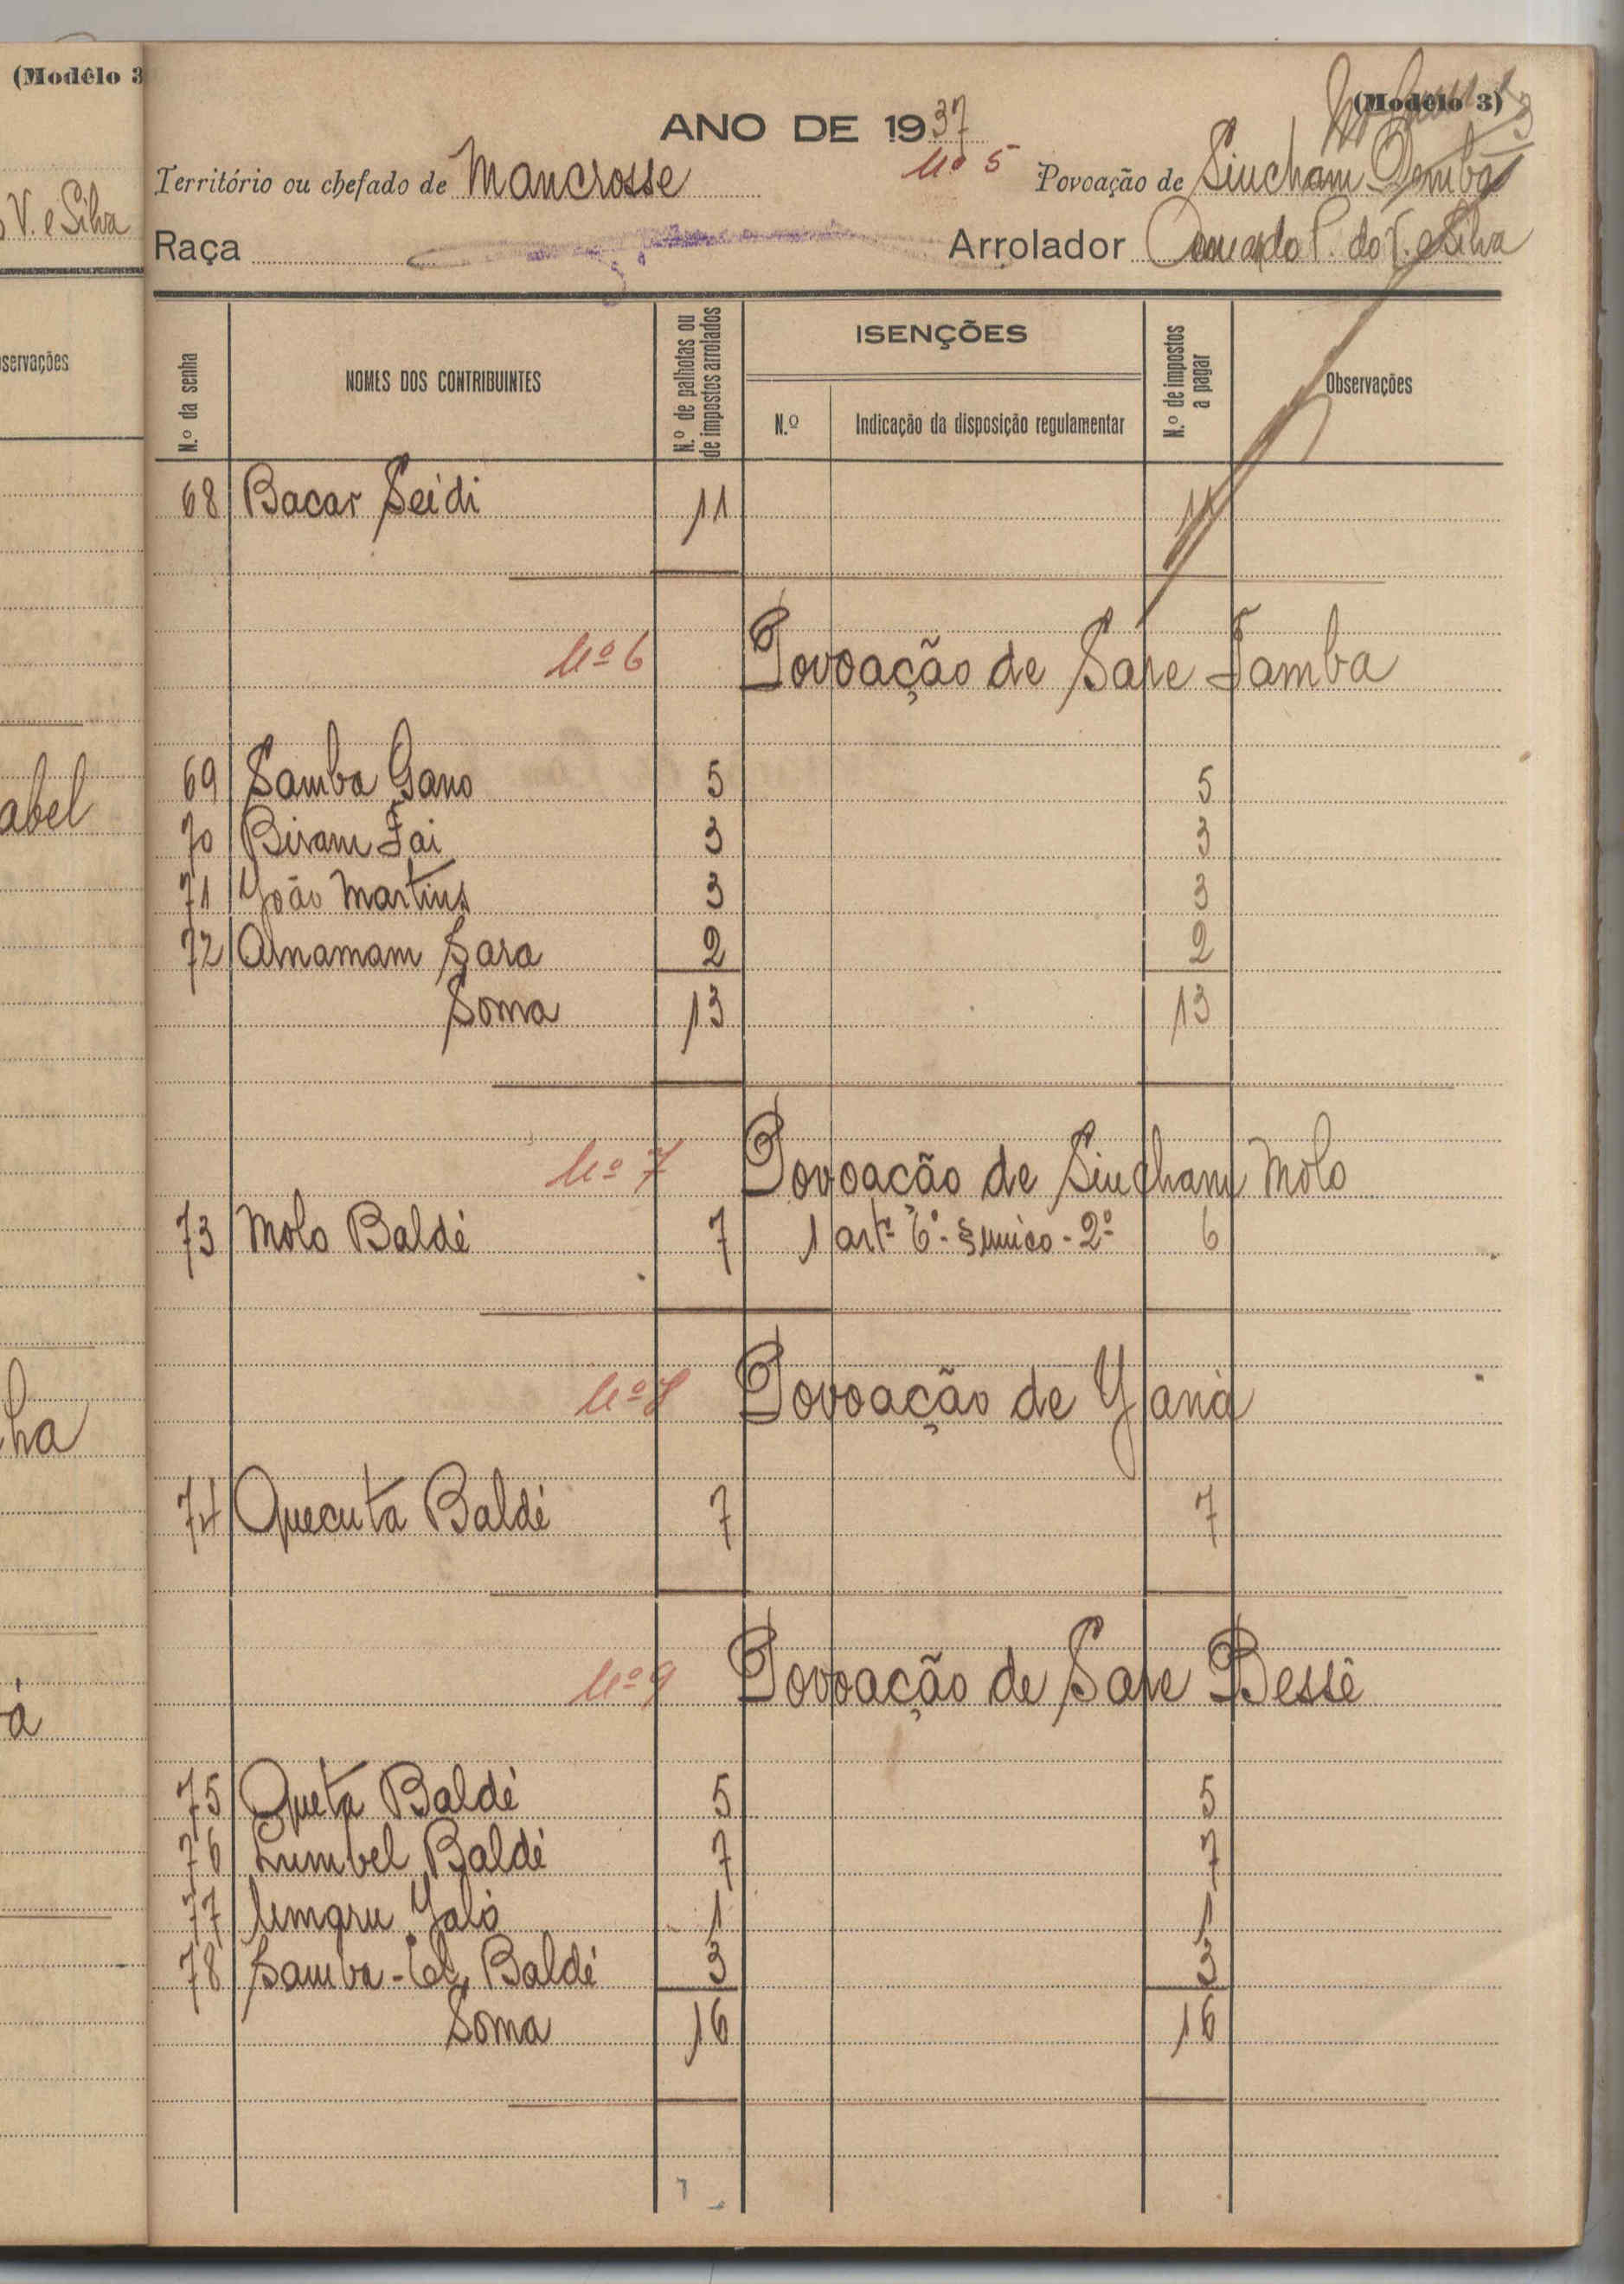 (Modêlo 3
V. e Silva
servações
abel
ha
à
(Modêlo 3)
ANO DE 1937
Território ou chefado de Mancrosse Nº 5 Povoação de Sincham Demba
Raça Arrolador P. do V. e Silva
N.º da senha NOMES DOS CONTRIBUINTES N.º de palhotas ou de impostos arrolados ISENÇÕES N.º de impostos a pagar Observações
N.º Indicação da disposição regulamentar
68 Bacar Seidi 11 11
Nº 6 Povoação de Sare Samba
69 Samba Gano 5 5
70 Biram Fai 3 3
71 João Martins 3 3
72 Amamam Sara 2 2
Soma 13 13
Nº 7 Povoação de Sincham Molo
73 Molo Baldé 7 1 artº 6º - § unico - 2º 6
Nº 8 Povoação de Yaná
74 Quecuta Baldé 7 7
Nº 9 Povoação de Sare Bessê
75 Queta Baldé 5 5
76 Lumbel Baldé 7 7
77 Umaru Jaló 1 1
78 Samba - Baldé 3 3
Soma 16 16